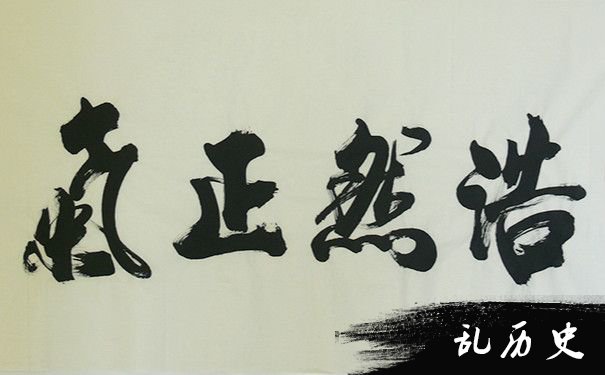 浩然正氣
乱历史